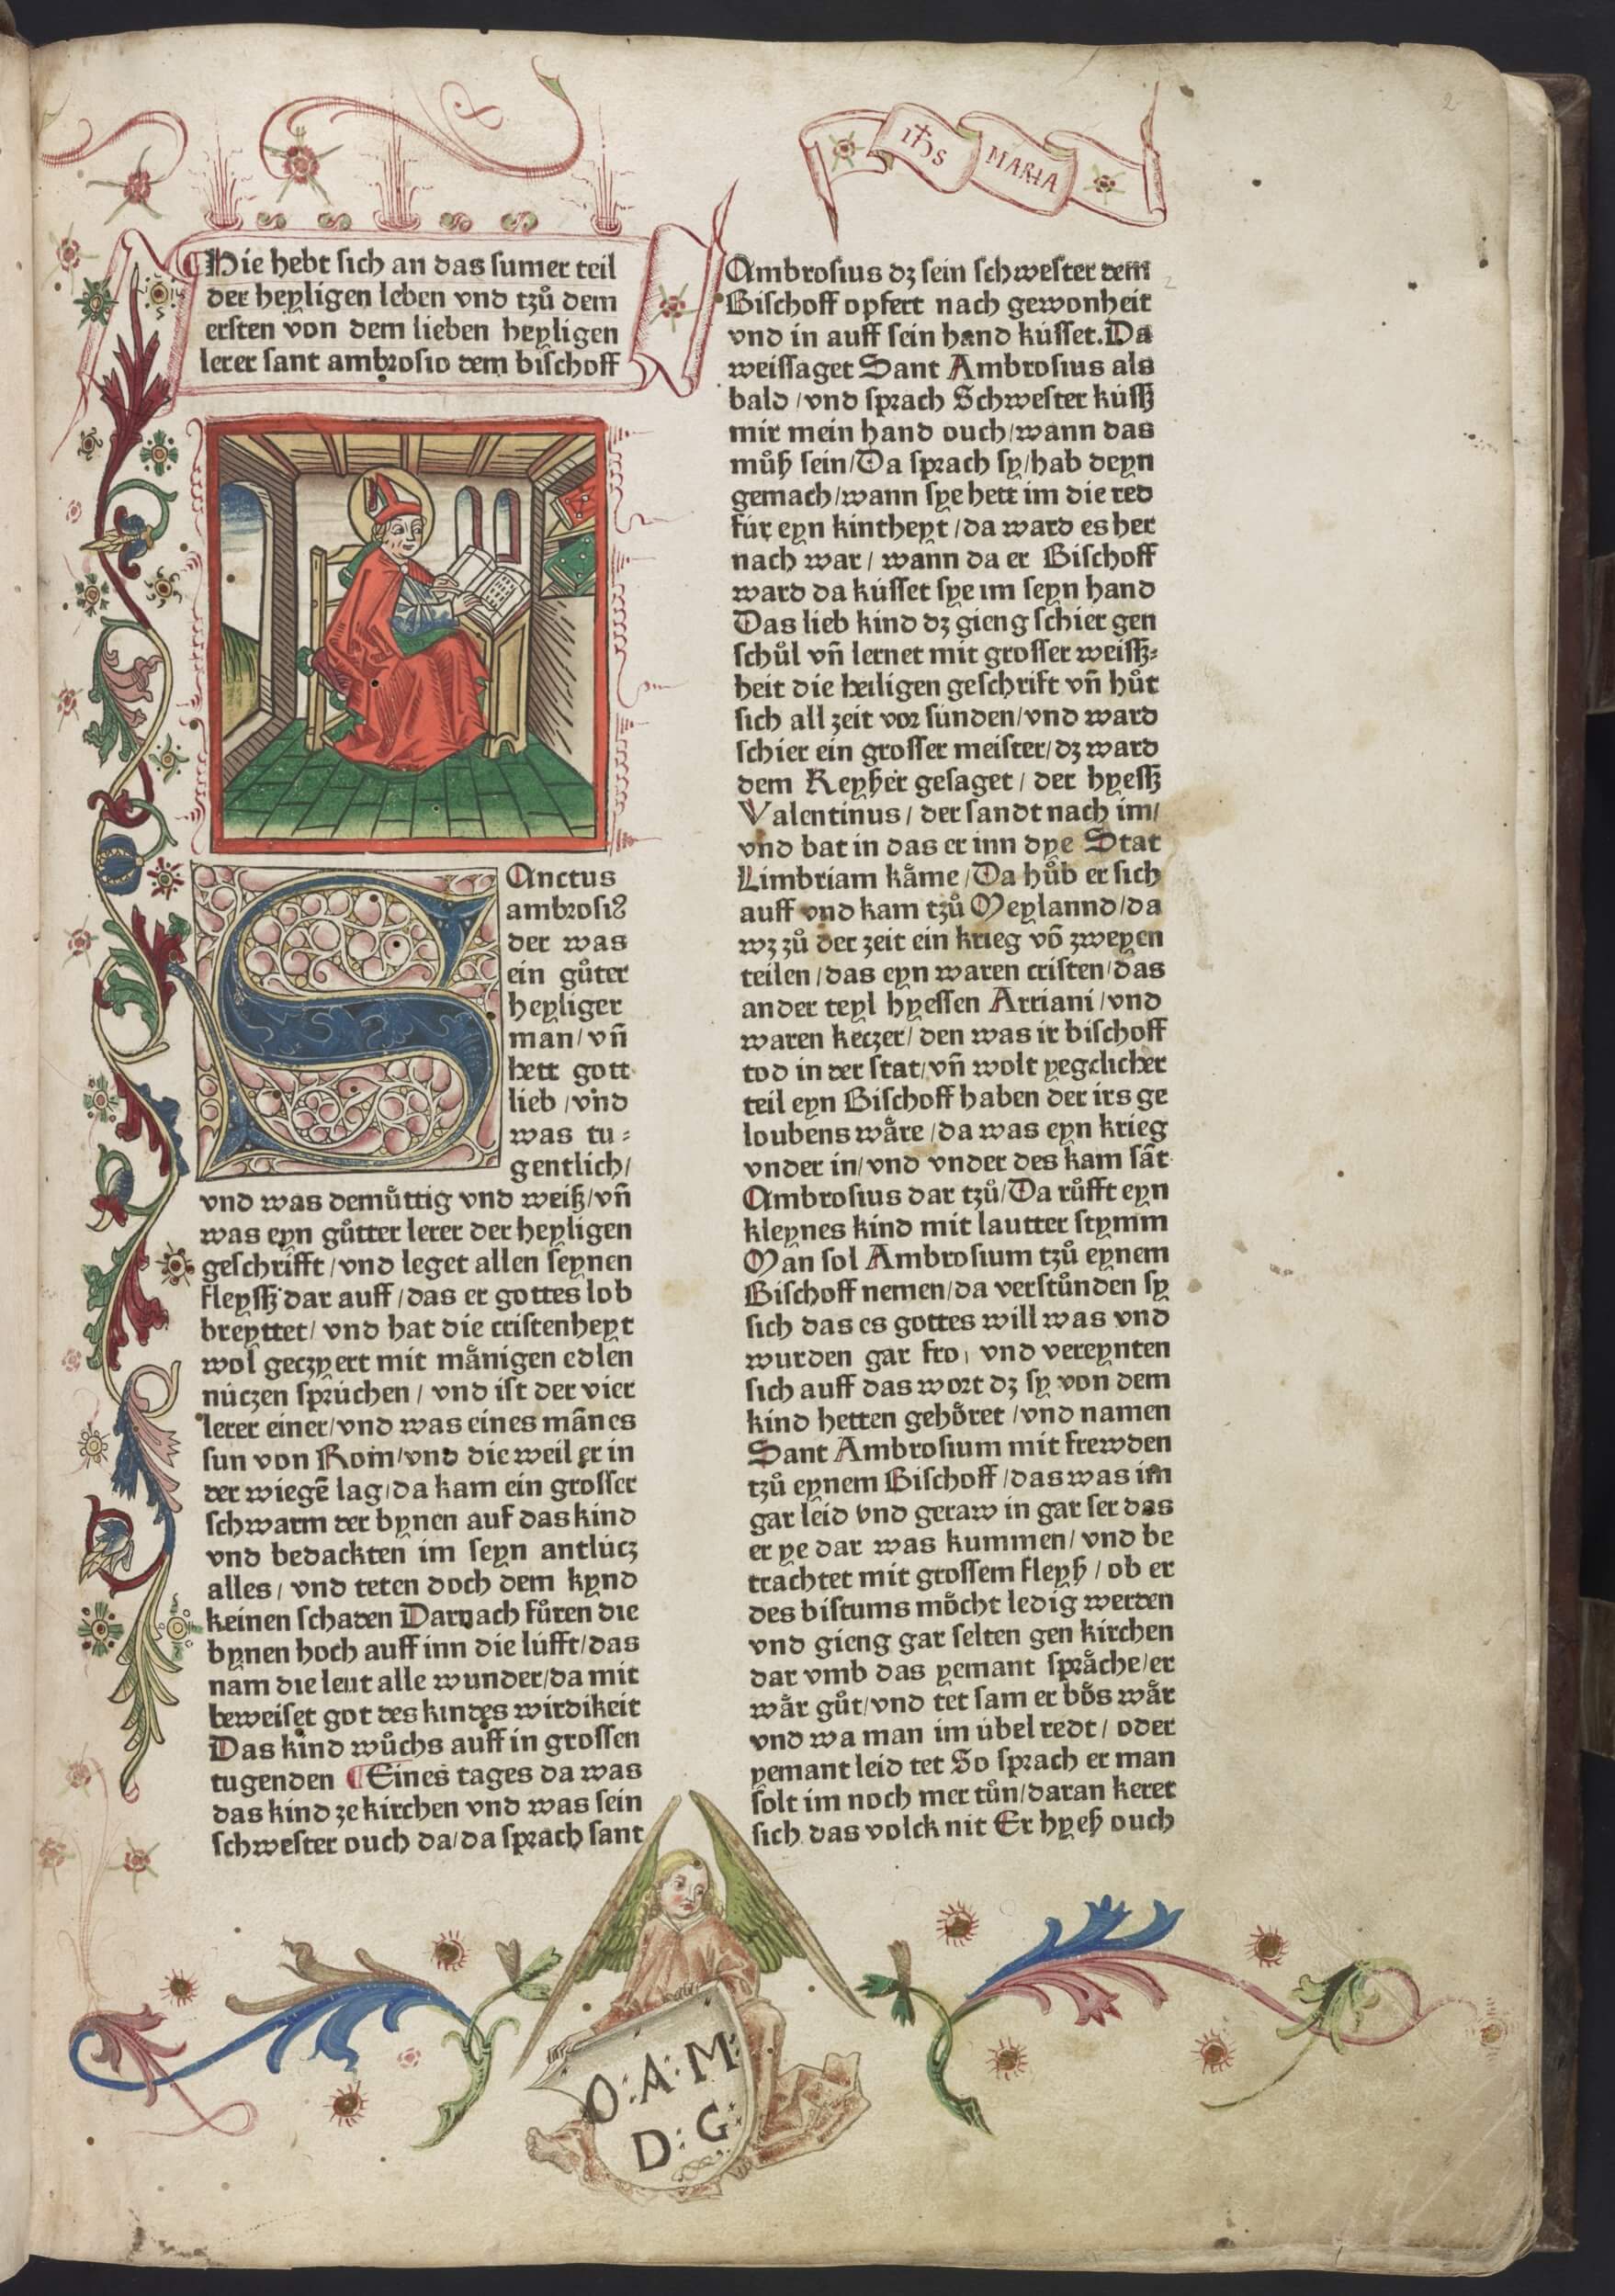 ihs MARIA
2
¶Hie hebt sich an das sumer teil
der heyligen leben vnd tzů dem
ersten von dem lieben heyligen
lerer sant ambrosio dem bischoff
SAnctus
ambrosiꝰ
der was
ein gůter
heyliger
man/vn̄
hett gott
lieb/vnd
was tu⸗
gentlich/
vnd was demůttig vnd weiß/vn̄
was eyn gůtter lerer der heyligen
geschrifft/vnd leget allen seynen
fleyssz dar auff/das er gottes lob
breyttet/vnd hat die cristenheyt
wol geczyert mit månigen edlen
núczen sprúchen/vnd ist der vier
lerer einer/vnd was eines mānes
sun von Rom/vnd die weil er in
der wiegē lag/da kam ein grosser
schwarm der bynen auf das kind
vnd bedackten im seyn antlúcz
alles/vnd teten doch dem kynd
keinen schaden Darnach fůren die
bynen hoch auff inn die lúfft/das
nam die leut alle wunder/da mit
beweiset got des kindes wirdikeit
Das kind wůchs auff in grossen
tugenden ¶Eines tages da was
das kind ze kirchen vnd was sein
schwester ouch da/da sprach sant
Ambrosius dz sein schwester dem
Bischoff opfert nach gewonheit
vnd in auff sein hand kússet.Da
weissaget Sant Ambrosius als
bald/vnd sprach Schwester kússz
mir mein hand ouch/wann das
můß sein/Da sprach sy/hab deyn
gemach/wann sye hett im die red
fúr eyn kintheyt/da ward es her
nach war/wann da er Bischoff
ward da kússet sye im seyn hand
Das lieb kind dz gieng schier gen
schůl vn̄ lernet mit grosser weissz⸗
heit die heiligen geschrift vn̄ hůt
sich all zeit vor súnden/vnd ward
schier ein grosser meister/dz ward
dem Keyßer gesaget/der hyessz
Valentinus/der sandt nach im/
vnd bat in das er inn dye Stat
Limbriam kåme/Da hůb er sich
auff vnd kam tzů Meylannd/da
wz zů der zeit ein krieg vō zweyen
teilen/das eyn waren cristen/das
ander teyl hyessen Arriani/vnd
waren keczer/den was ir bischoff
tod in der stat/vn̄ wolt yegclicher
teil eyn Bischoff haben der irs ge
loubens wåre/da was eyn krieg
vnder in/vnd vnder des kam sāt
Ambrosius dar tzů/Da růfft eyn
kleynes kind mit lautter stymm
Man sol Ambrosium tzů eynem
Bischoff nemen/da verstůnden sy
sich das es gottes will was vnd
wurden gar fro/vnd vereynten
sich auff das wort dz sy von dem
kind hetten gehőret/vnd namen
Sant Ambrosium mit frewden
tzů eynem Bischoff/das was im
gar leid vnd geraw in gar ser das
er ye dar was kummen/vnd be
trachtet mit grossem fleyß/ob er
des bistums mőcht ledig werden
vnd gieng gar selten gen kirchen
dar vmb das yemant språche/er
wår gůt/vnd tet sam er bős wår
vnd wa man im úbel redt/oder
yemant leid tet So sprach er man
solt im noch mer tůn/daran keret
sich das volck nit Er hyeß ouch
O:A:M:
D:G: